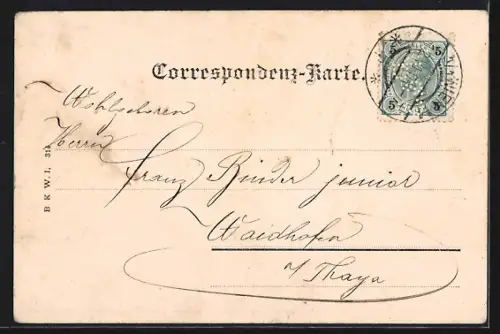 Correspondenz-Karte.
Wohlgeboren
Herrn
Franz Binder junior
Waidhofen
a/ Thaya
B K W I. 31
5 5
5 5